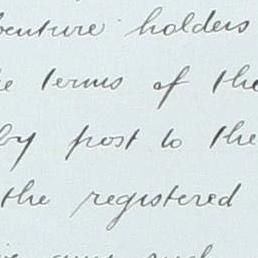 debenture holders
the terms of the
by post to the
the registered
any such